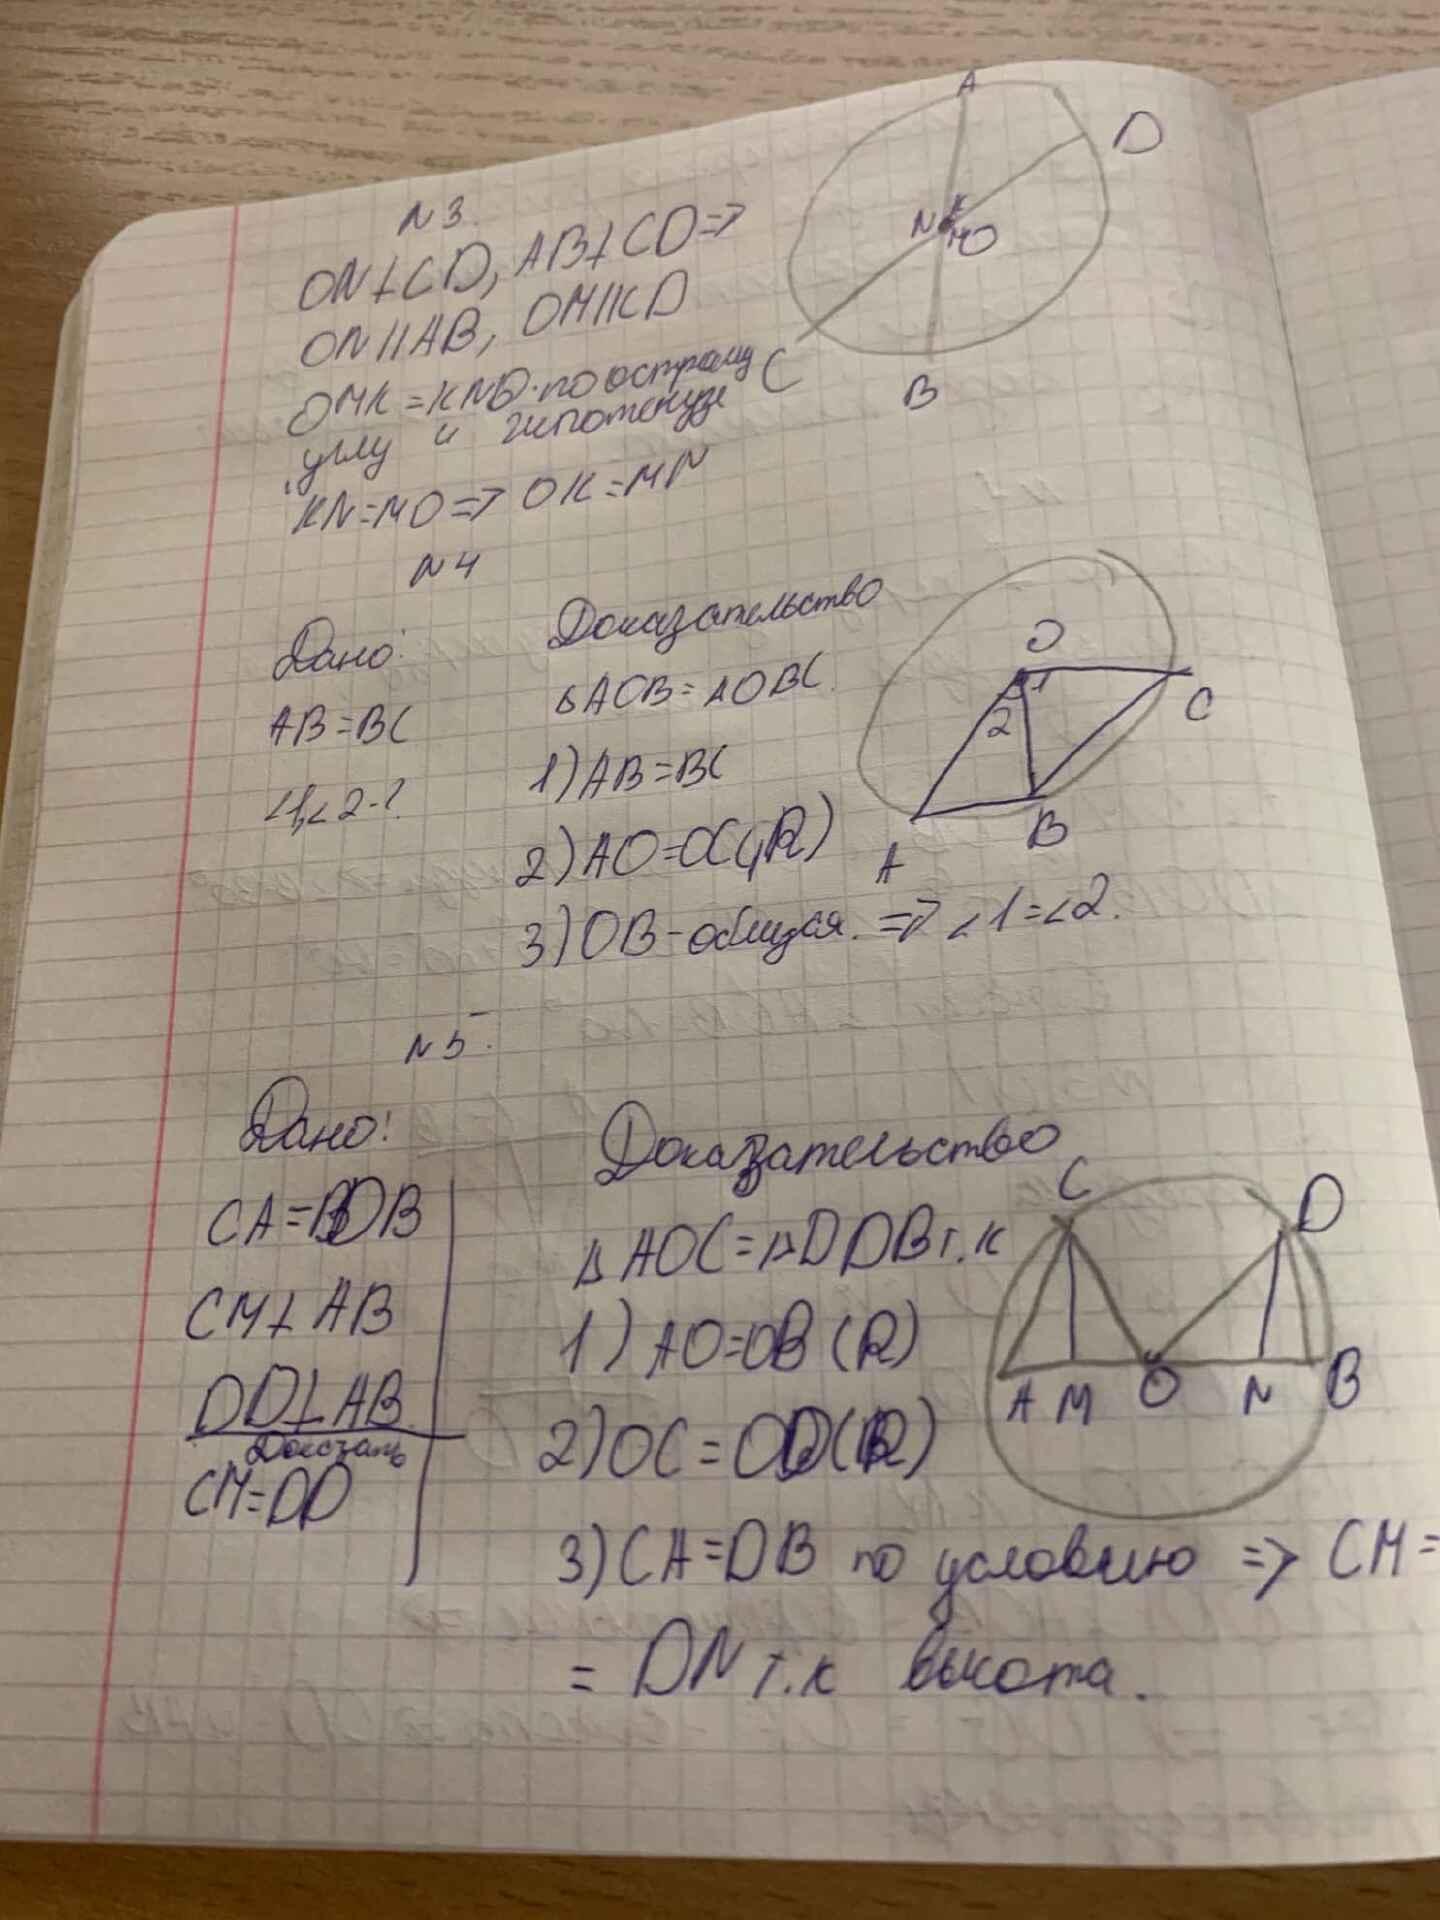 N3.
ON⊥CD, AB⊥CD=>
ON||AB, OM||KD
OMK=KNO.по острому
углу и гипотенузе
KN=MO=> OK=MN
A
D
N K
M O
C
B
N4
Дано:
AB=BC
<1,<2-?
Доказательство
ΔAOB=ΔOBC.
1) AB=BC
2) AO=OC(R)
3) OB-общая. => <1=<2.
O
1
2
C
B
A
N5.
Дано:
CA=DB
CM⊥AB
DD⊥AB
Доказать
CM=DD
Доказательство
ΔAOC=ΔDDB т.к
1) AO=OB (R)
2) OC=OD(R)
3) CA=DB по условию => CM=
= DN т.к высота.
C
D
A M O N B